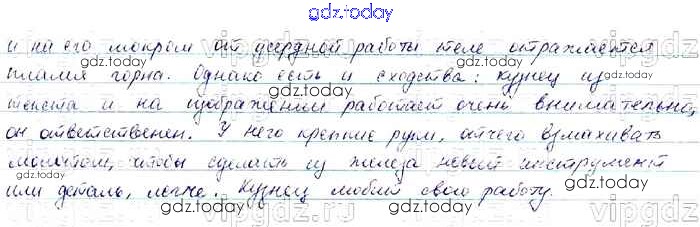 gdz.today
и на его мокром от усердной работы теле отражается
gdz.today gdz.today
пламя горна. Однако есть и сходства: кузнец из
gdz.today gdz.today
текста и на изображении работает очень внимательно,
он ответственен. У него крепкие руки, отчего взмахивать
gdz.today gdz.today
молотом, чтобы сделать из железа новый инструмент
gdz.today gdz.today
или деталь, легче. Кузнец любит свою работу.
gdz.today gdz.today
vipgdz.ru